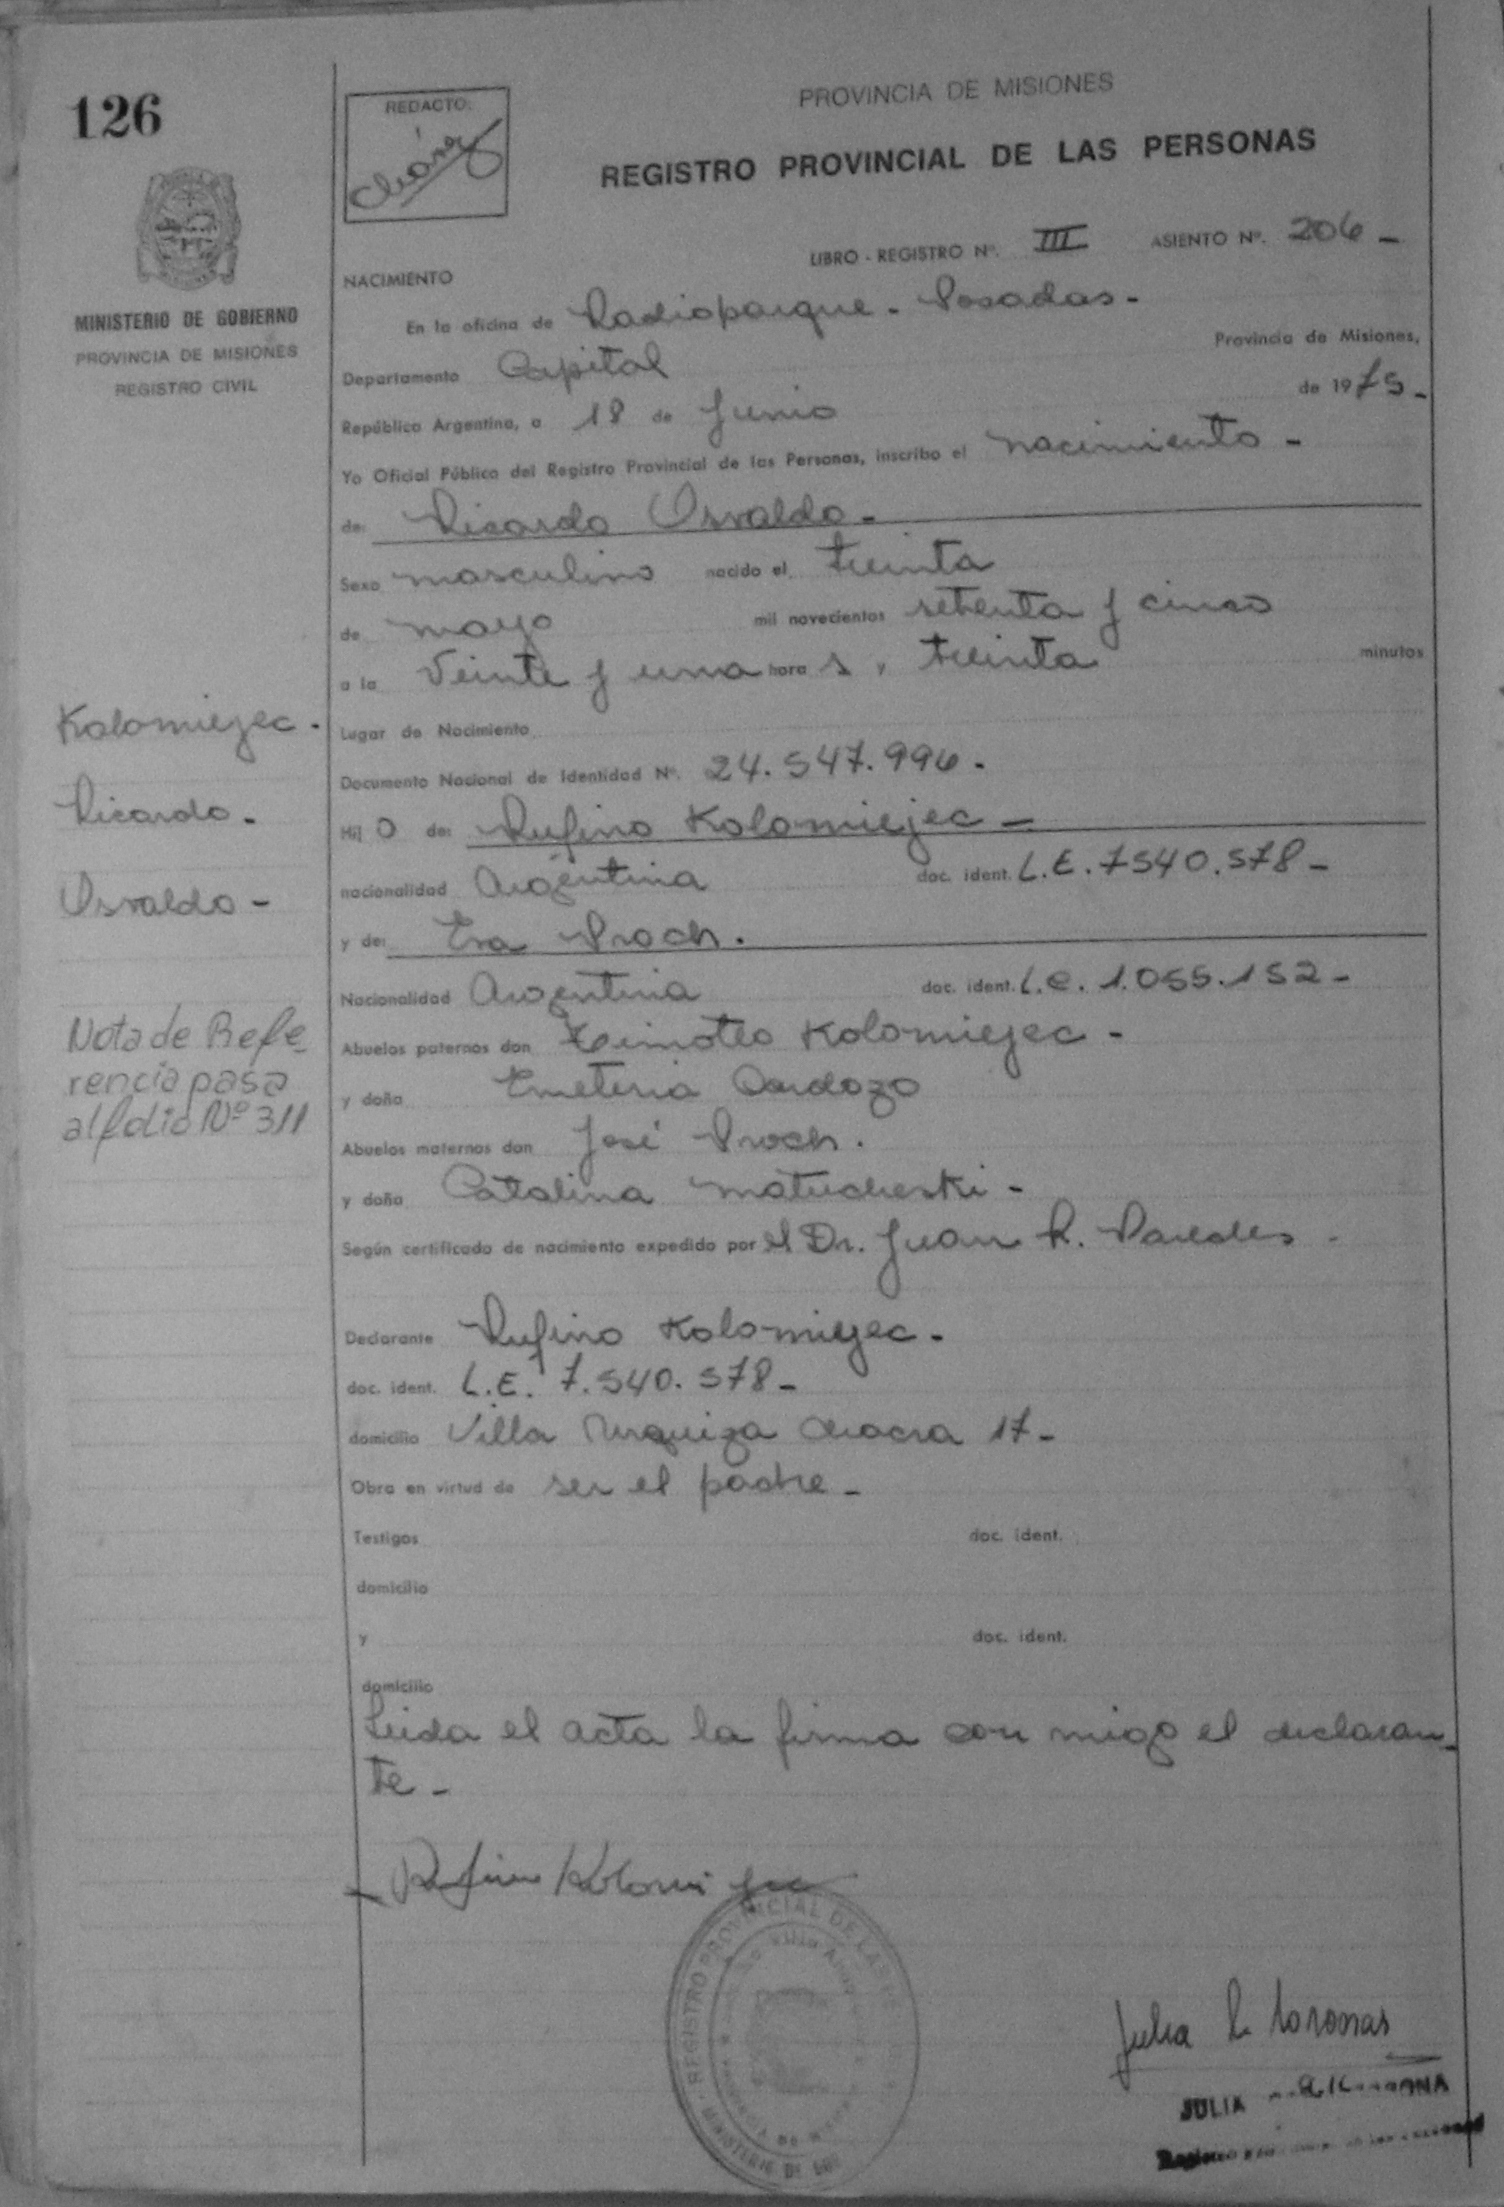 126
REDACTO:
Cháves
PROVINCIA DE MISIONES
REGISTRO PROVINCIAL DE LAS PERSONAS
MINISTERIO DE GOBIERNO
PROVINCIA DE MISIONES
REGISTRO CIVIL
LIBRO - REGISTRO Nº. III ASIENTO Nº. 206 -
NACIMIENTO
En la oficina de Radioparque - Posadas -
Departamento Capital Provincia de Misiones,
República Argentina, a 18 de Junio de 1975 -
Yo Oficial Público del Registro Provincial de las Personas, inscribo el nacimiento -
de: Ricardo Osvaldo -
Sexo masculino nacido el treinta
de mayo mil novecientos setenta y cinco
a la Veinte y una hora s y treinta minutos
Lugar de Nacimiento
Documento Nacional de Identidad Nº. 24.547.996 -
Hij o de: Rufino Kolomiejec -
nacionalidad Argentina doc. ident. L.E. 7540.578 -
y de: Eva Proch.
Nacionalidad Argentina doc. ident. L.C. 1.055.152 -
Abuelos paternos don Timoteo Kolomiejec -
y doña Emeteria Cardozo
Abuelos maternos don José Proch.
y doña Catalina Matucheski -
Según certificado de nacimiento expedido por el Dr. Juan R. Paredes -
Declarante Rufino Kolomiejec -
doc. ident. L.E. 7.540.578 -
domicilio Villa Urquiza Chacra 17 -
Obra en virtud de ser el padre -
Testigos doc. ident.
domicilio
y doc. ident.
domicilio
Leida el acta la firma con migo el declaran_
te -
Kolomiejec -
Ricardo -
Osvaldo -
Nota de Refe_
rencia pasa
al folio Nº 311
Rufino Kolomi jec
REGISTRO PROVINCIAL DE LAS
Julia
JULIA